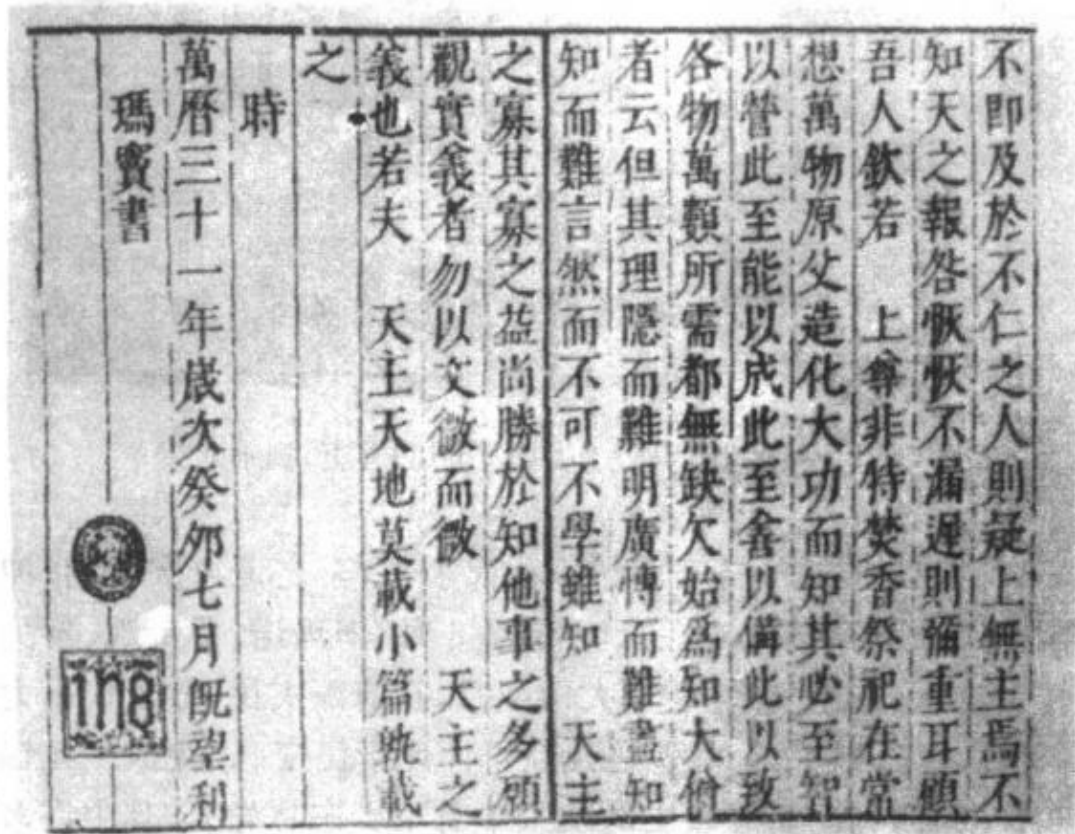 不即及於不仁之人則疑上無主焉不
知天之報咎恢恢不漏遲則彌重耳顧
吾人欽若　上尊非特焚香祭祀在常
想萬物原父造化大功而知其必至智
以營此至能以成此至善以備此以致
各物萬類所需都無缺欠始爲知大倫
者云但其理隱而難明廣博而難盡知
知而難言然而不可不學雖知　天主
之寡其寡之益尚勝於知他事之多願
觀實義者勿以文微而微　天主之
義也若夫　天主天地莫載小篇孰載
之
時
萬曆三十一年歲次癸卯七月旣望利
瑪竇書
ihs